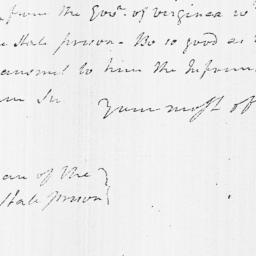 from the Gov.r of virginea
State prison - Be so good as
to him the Inform
Your most
of the
State prison